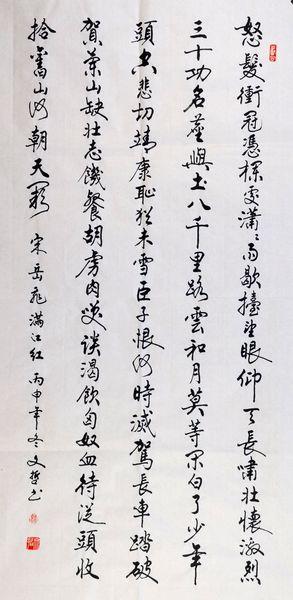 怒髮衝冠憑欄處瀟〻雨歇擡望眼仰天長嘯壯懷激烈
三十功名塵與土八千里路雲和月莫等閑白了少年
頭空悲切靖康恥猶未雪臣子恨何時滅駕長車踏破
賀蘭山缺壯志饑餐胡虜肉笑談渴飲匈奴血待從頭收
拾舊山河朝天闕 宋岳飛滿江紅 丙申年冬文哲書